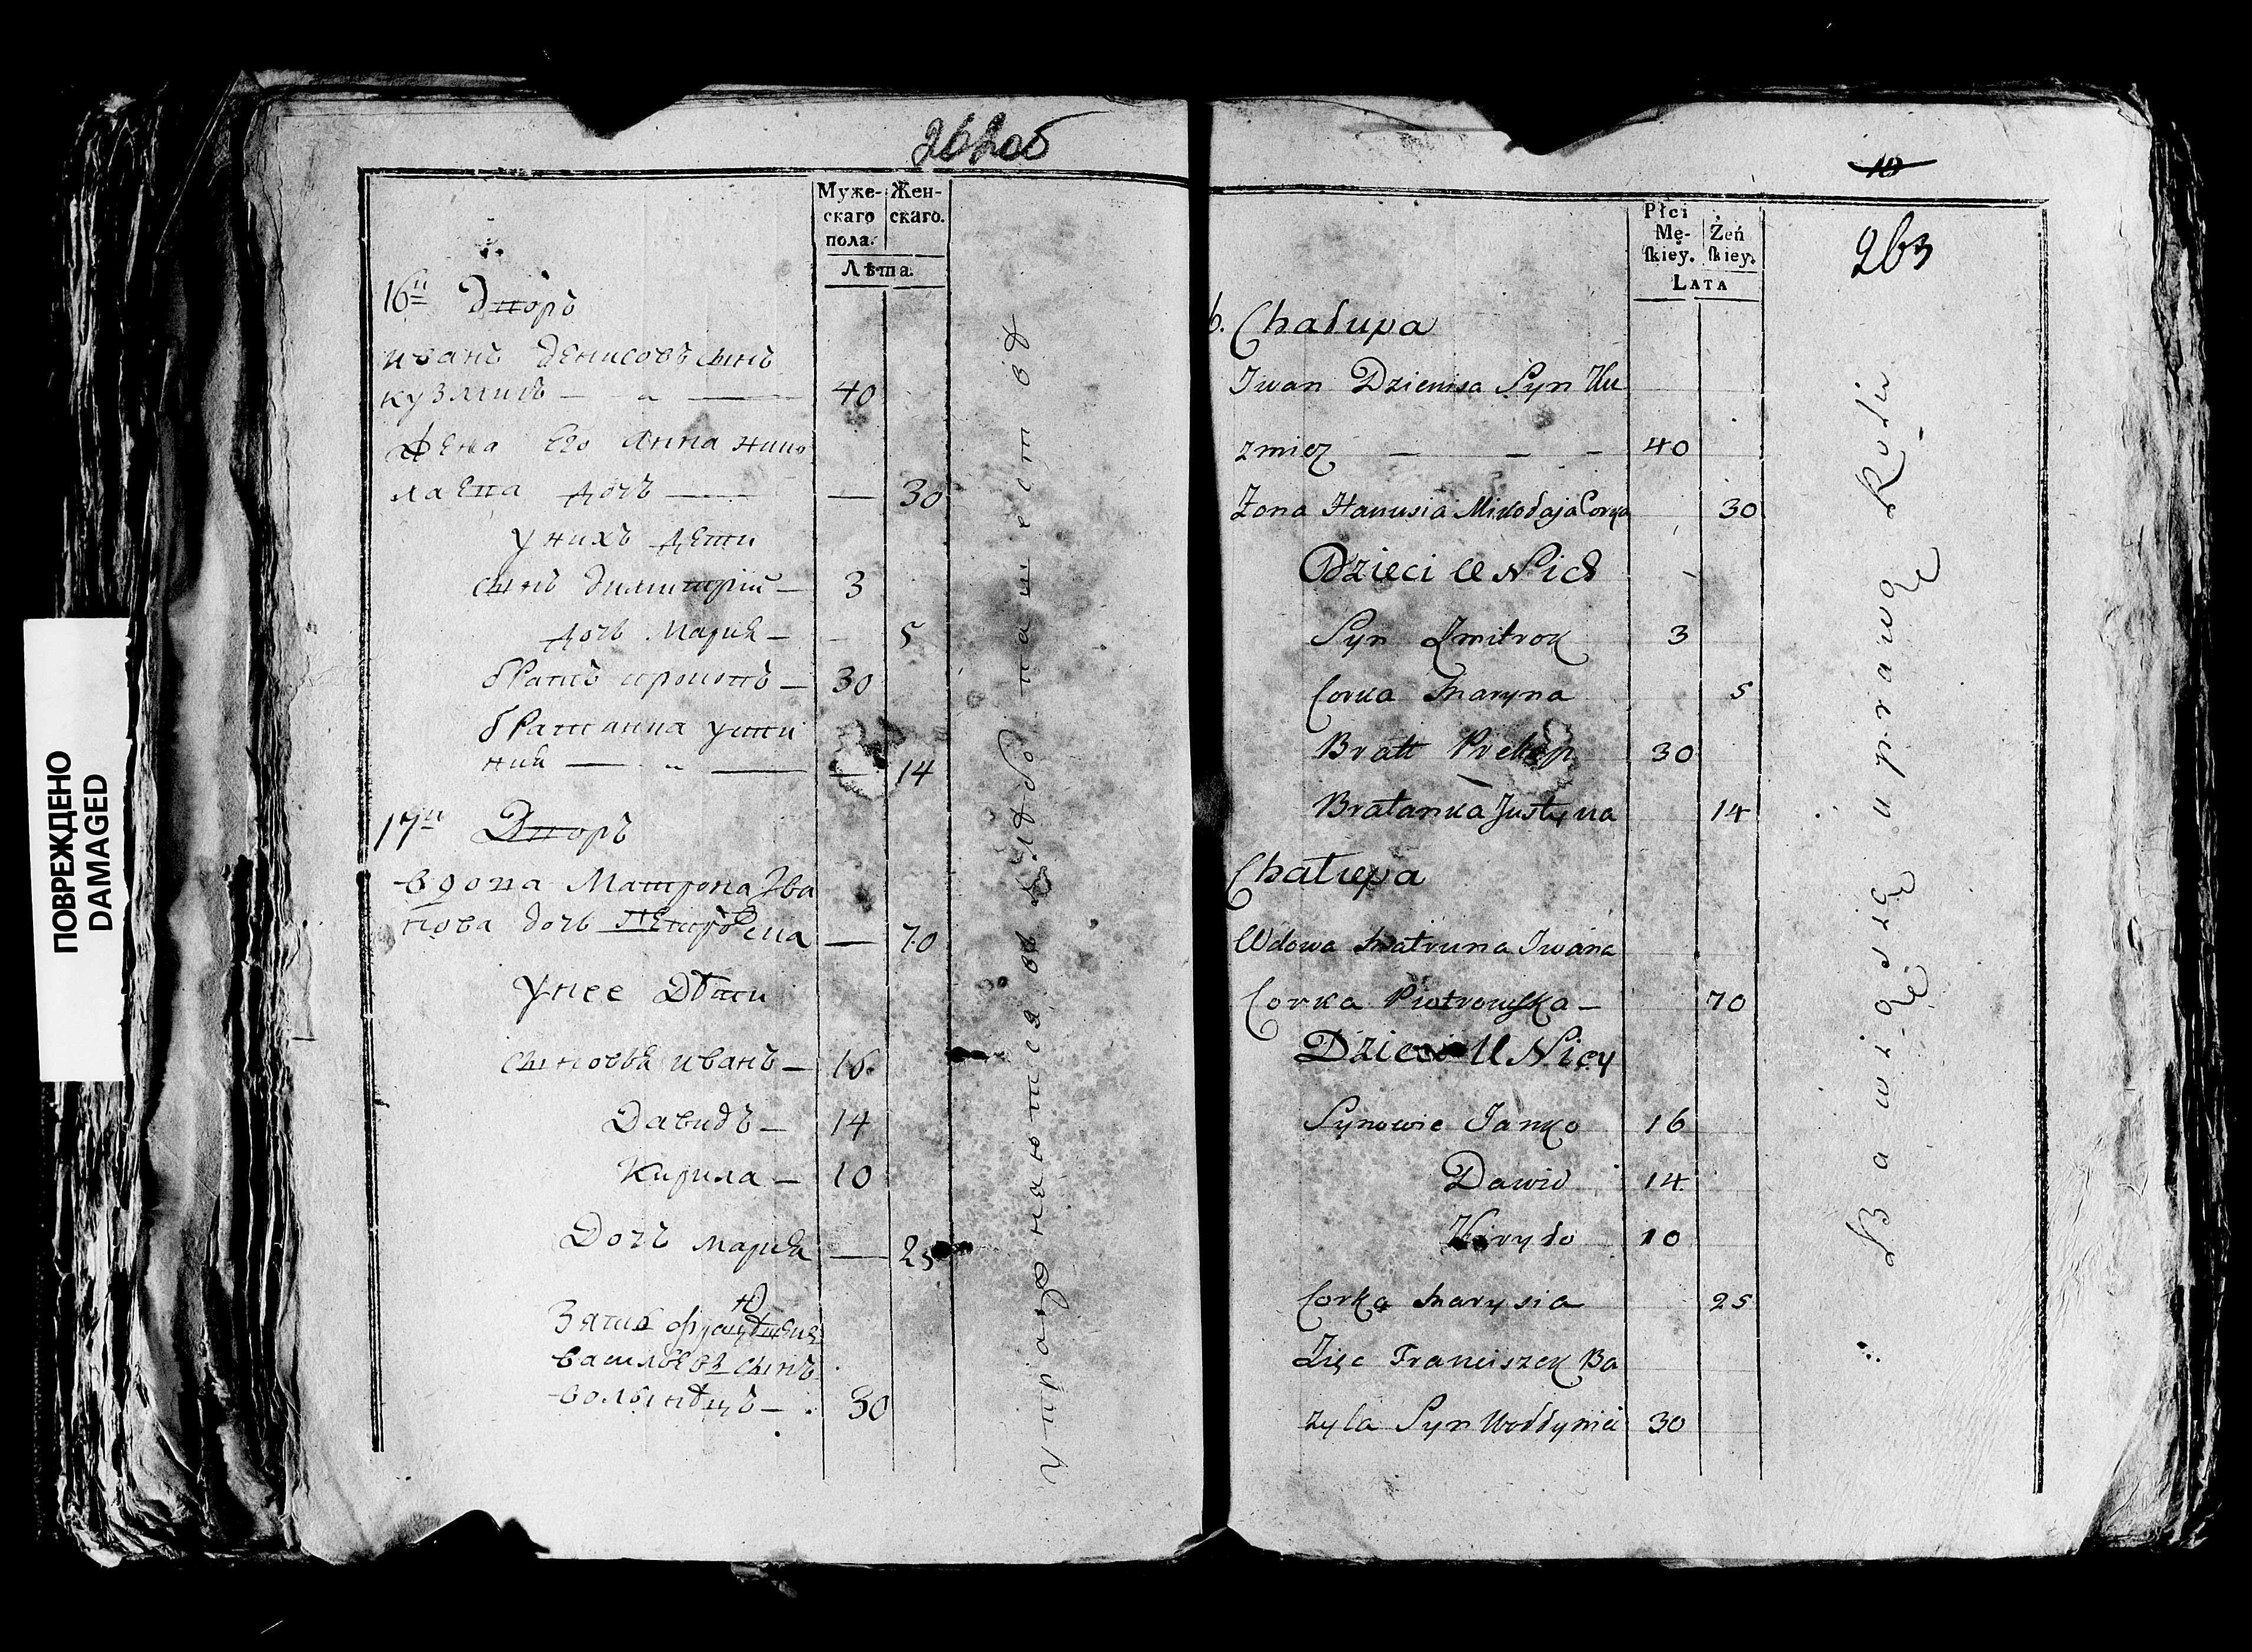 ПОВРЕЖДЕНО
DAMAGED
262об
Муже-
скаго
пола.
Жен-
скаго.
Лѣта.
16й Дворъ
иванъ денисовъ сынъ
кузмичъ — 40
Жена его Анна нико
лаева дочь — — 30
у нихъ дети
сынъ димитрій — 3
дочь Мария — - 5
братъ прокопъ — 30
братанка усти
ния — — 14
17й Дворъ
вдова Матрона Ива
нова дочь Петровска — 70
у нее Дѣти
сыновья иванъ — 16.
Давидъ — 14
Кирила — 10
Дочь мария — 25
Зять
васильевъ сынъ
волынецъ — 30
упражняются въ хлѣбопашествѣ
10
263
Płci
Mę-
skiey.
Żeń
skiey.
LATA
6. Chałupa
Iwan Dzienisa Syn Ku
zmicz — — - 40
Zona Hanusia Mikołaja Corka 30
Dzieci U Nich
Syn Zmitrok 3
Corka Maryna 5
Bratt Prekop 30
Bratanka Justyna 14
Chałupa
Wdowa Matruna Iwana
Corka Piotrowska — 70
Dzieci U Niey
Synowie Janko 16
Dawid 14
Kiryło 10
Corka Marysia 25
Zięc Franciszek Ba
zyla Syn Wołyniec 30
Bawią się uprawą Roli